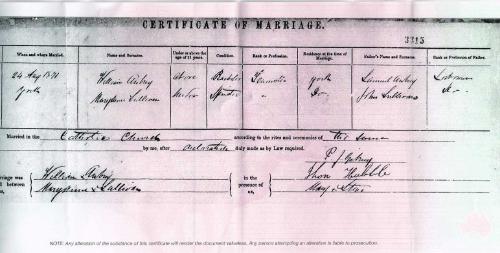 CERTIFICATE OF MARRIAGE.
3315
When and where Married. Name and Surname. Under or above the age of 21 years. Condition. Rank or Profession. Residence at the time of Marriage. Father's Name and Surname. Rank or Profession of Father.
24 Aug 1871 William above York Samuel Labourer
York Maryanne Sullivan Under Spinster " Do John Sullivan Do
Married in the Catholic Church according to the rites and ceremonies of the same
by me, after duly made as by Law required.
riage was between William in the presence of us, Thos Hubble
Maryanne Sullivan Mary
NOTE: Any alteration of the substance of this certificate will render the document valueless. Any person attempting an alteration is liable to prosecution.